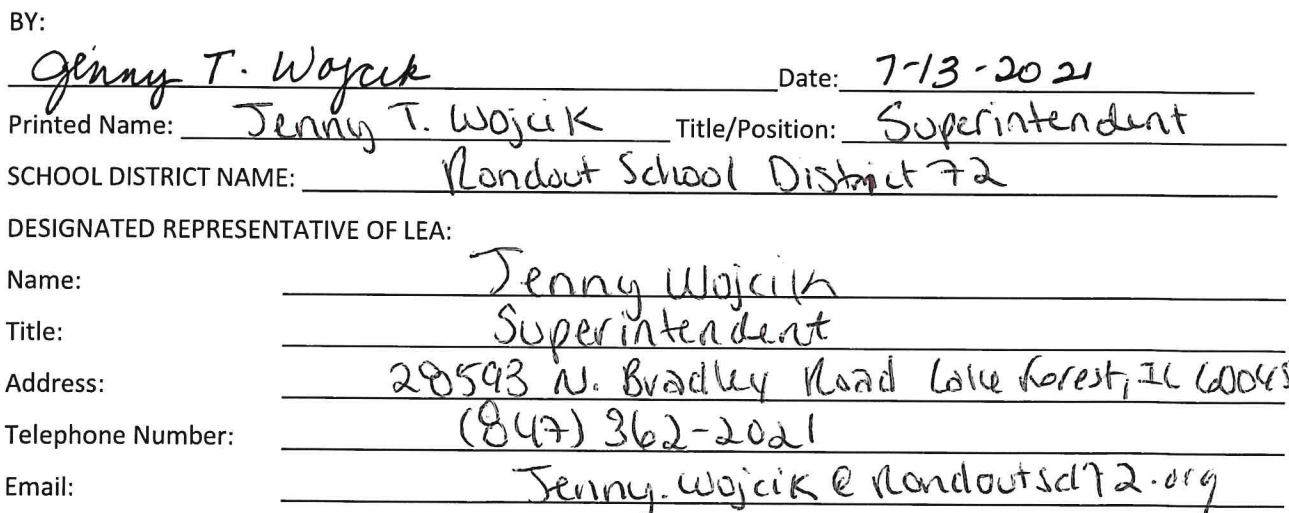 BY:
Jenny T. Wojcik Date: 7-13-2021
Printed Name: Jenny T. Wojcik Title/Position: Superintendent
SCHOOL DISTRICT NAME: Rondout School District 72
DESIGNATED REPRESENTATIVE OF LEA:
Name: Jenny Wojcik
Title: Superintendent
Address: 28593 N. Bradley Road Lake Forest, IL 60045
Telephone Number: (847) 362-2021
Email: Jenny.Wojcik@Rondoutsd72.org